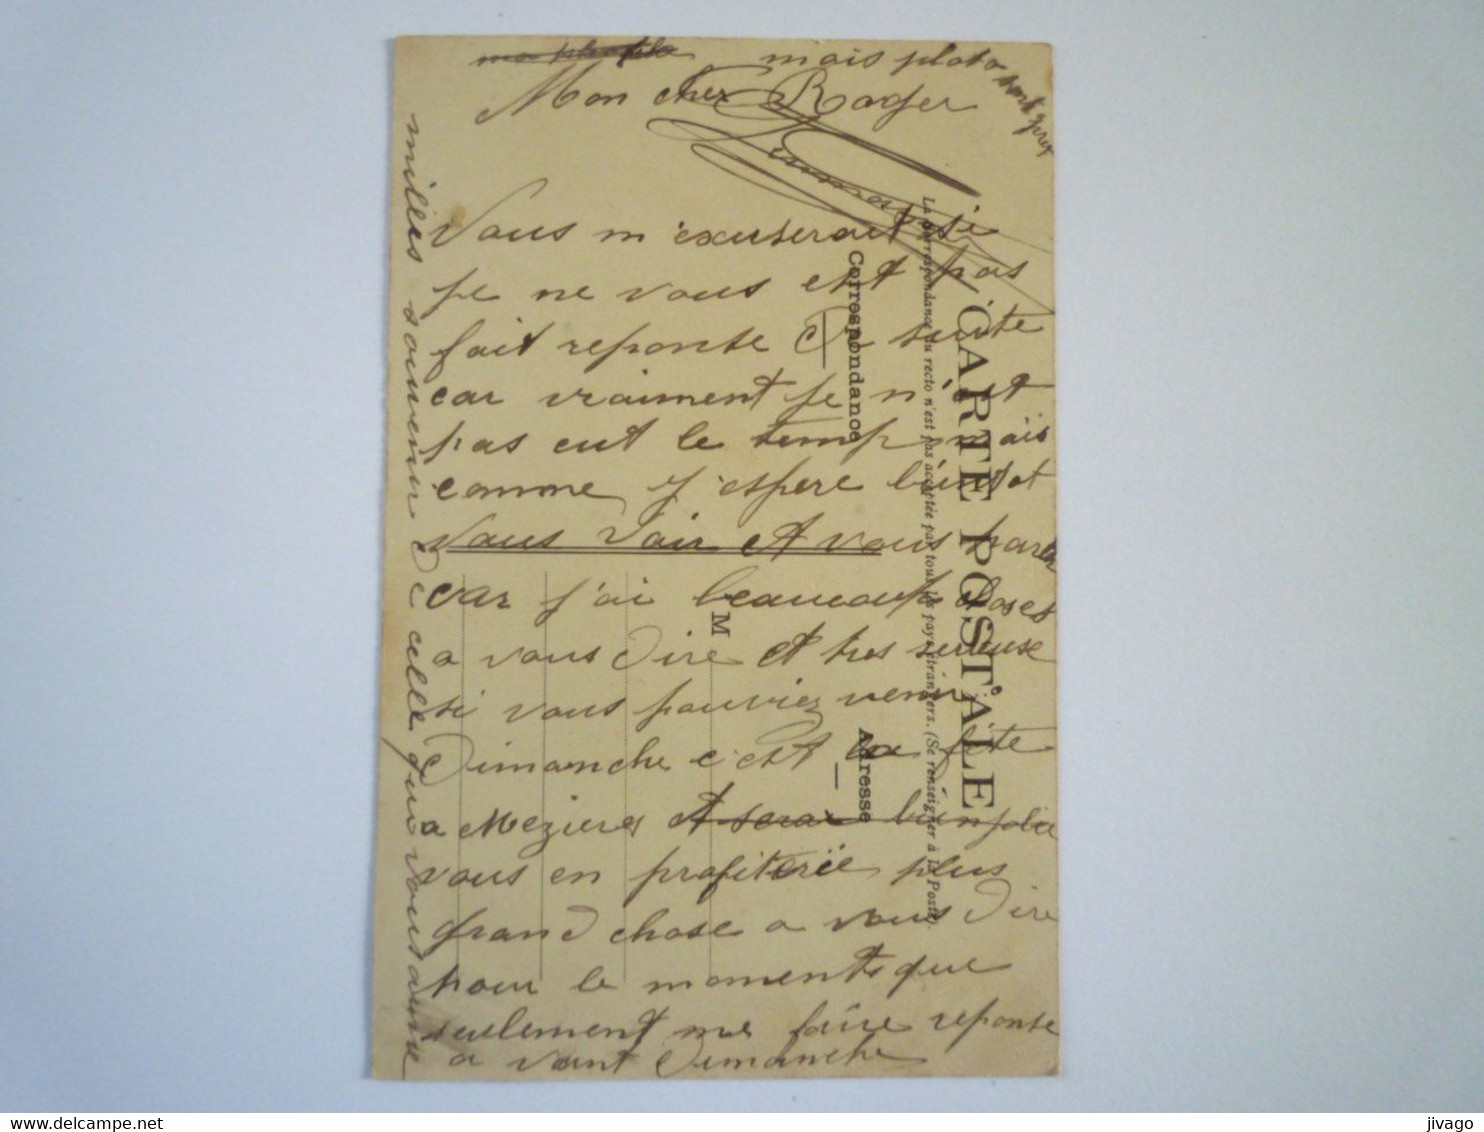 mais photo
Mon cher Roger
Vous m'excuserait si
je ne vous est pas
fait reponse de suite
car vraiment je n'et
pas eut le temp mais
comme j'espere bientot
vous voir et vous parler
car j'ai beaucoup choses
a vous dire et tres serieuse
si vous pouviez venir
Dimanche c'est la fête
a Mezieres et serai bien
vous en profiterïe plus
grand chose a vous dire
pour le moments que
seulement me faire reponse
avant Dimanche
milles souvenir de celle qui vous aime
CARTE POSTALE
La correspondance du recto n'est pas acceptée par tous les pays étrangers. (Se renseigner à la Poste).
Correspondance
Adresse
M
jivago